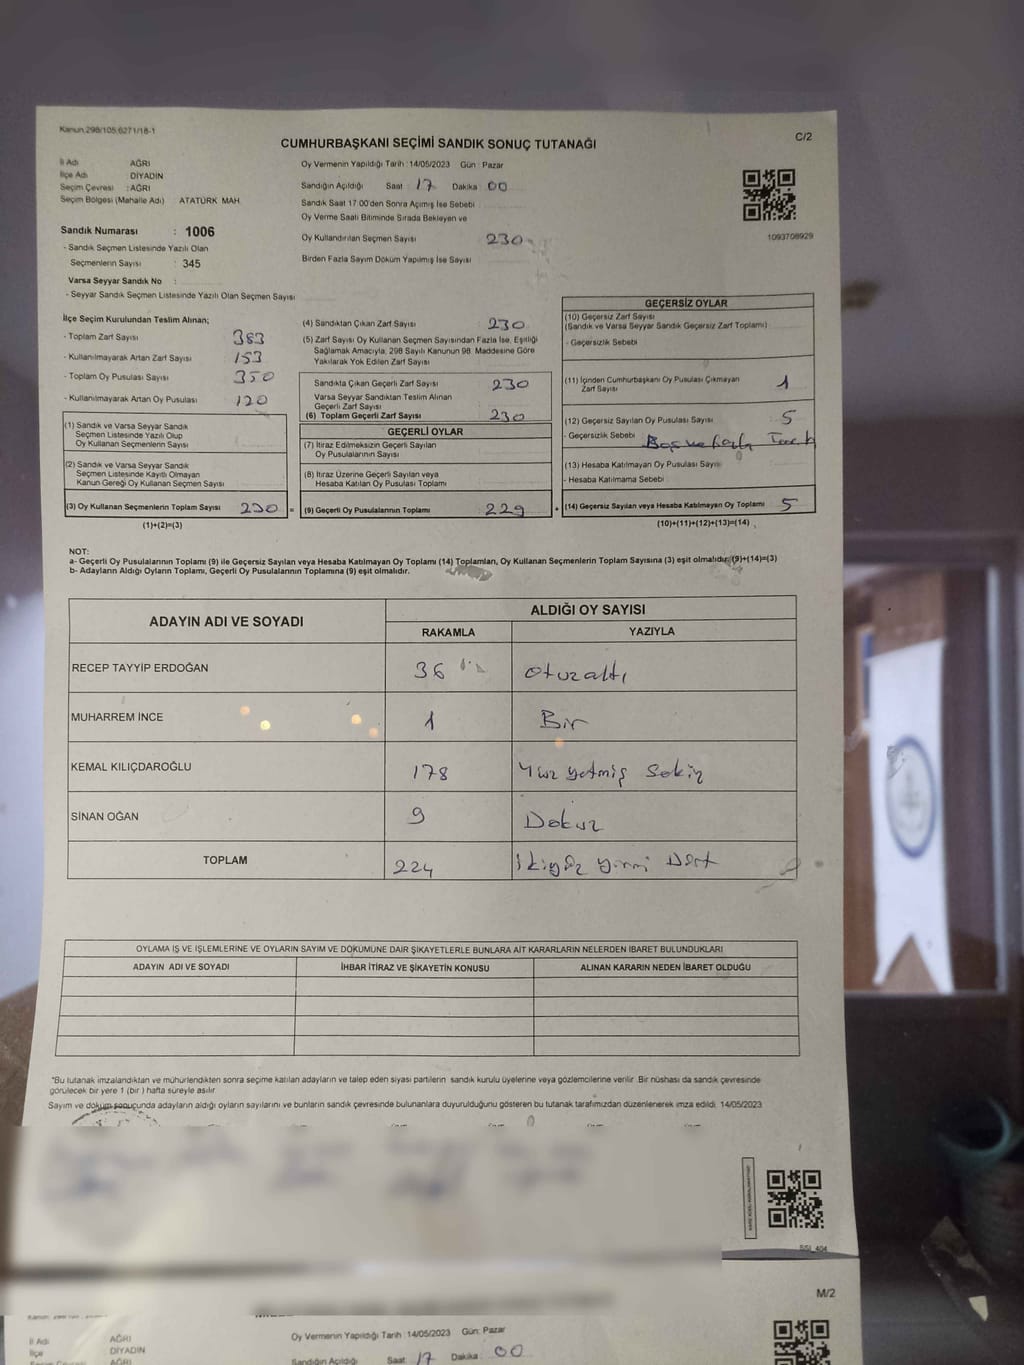 Kanun 298/105,6271/18-1
C/2
CUMHURBAŞKANI SEÇİMİ SANDIK SONUÇ TUTANAĞI
İl Adı AĞRI
İlçe Adı DİYADİN
Seçim Çevresi : AĞRI
Seçim Bölgesi (Mahalle Adı) ATATÜRK MAH.
Sandık Numarası : 1006
- Sandık Seçmen Listesinde Yazılı Olan
Seçmenlerin Sayısı : 345
Varsa Seyyar Sandık No :
- Seyyar Sandık Seçmen Listesinde Yazılı Olan Seçmen Sayısı
Oy Vermenin Yapıldığı Tarih : 14/05/2023 Gün : Pazar
Sandığın Açıldığı Saat 17 Dakika 00
Sandık Saat 17:00'den Sonra Açımış İse Sebebi
Oy Verme Saati Bitiminde Sırada Bekleyen ve
Oy Kullandırılan Seçmen Sayısı 230
Birden Fazla Sayım Döküm Yapılmış İse Sayısı
1093708929
İlçe Seçim Kurulundan Teslim Alınan;
- Toplam Zarf Sayısı 383
- Kullanılmayarak Artan Zarf Sayısı 153
- Toplam Oy Pusulası Sayısı 350
- Kullanılmayarak Artan Oy Pusulası 120
(1) Sandık ve Varsa Seyyar Sandık
Seçmen Listesinde Yazılı Olup
Oy Kullanan Seçmenlerin Sayısı
(2) Sandık ve Varsa Seyyar Sandık
Seçmen Listesinde Kayıtlı Olmayan
Kanun Gereği Oy Kullanan Seçmen Sayısı
(3) Oy Kullanan Seçmenlerin Toplam Sayısı 230 =
(1)+(2)=(3)
(4) Sandıktan Çıkan Zarf Sayısı 230
(5) Zarf Sayısı Oy Kullanan Seçmen Sayısından Fazla İse, Eşitliği
Sağlamak Amacıyla; 298 Sayılı Kanunun 98. Maddesine Göre
Yakılarak Yok Edilen Zarf Sayısı
Sandıkta Çıkan Geçerli Zarf Sayısı 230
Varsa Seyyar Sandıktan Teslim Alınan
Geçerli Zarf Sayısı
(6) Toplam Geçerli Zarf Sayısı 230
GEÇERLİ OYLAR
(7) İtiraz Edilmeksizin Geçerli Sayılan
Oy Pusulalarının Sayısı
(8) İtiraz Üzerine Geçerli Sayılan veya
Hesaba Katılan Oy Pusulası Toplamı
(9) Geçerli Oy Pusulalarının Toplamı 229 +
GEÇERSİZ OYLAR
(10) Geçersiz Zarf Sayısı
(Sandık ve Varsa Seyyar Sandık Geçersiz Zarf Toplamı)
- Geçersizlik Sebebi
(11) İçinden Cumhurbaşkanı Oy Pusulası Çıkmayan
Zarf Sayısı 1
(12) Geçersiz Sayılan Oy Pusulası Sayısı 5
- Geçersizlik Sebebi
(13) Hesaba Katılmayan Oy Pusulası Sayısı
- Hesaba Katılmama Sebebi
(14) Geçersiz Sayılan veya Hesaba Katılmayan Oy Toplamı 5
(10)+(11)+(12)+(13)=(14)
NOT:
a- Geçerli Oy Pusulalarının Toplamı (9) ile Geçersiz Sayılan veya Hesaba Katılmayan Oy Toplamı (14) Toplamları, Oy Kullanan Seçmenlerin Toplam Sayısına (3) eşit olmalıdır. (9)+(14)=(3)
b- Adayların Aldığı Oyların Toplamı, Geçerli Oy Pusulalarının Toplamına (9) eşit olmalıdır.
ADAYIN ADI VE SOYADI ALDIĞI OY SAYISI
RAKAMLA YAZIYLA
RECEP TAYYİP ERDOĞAN 36 otuzaltı
MUHARREM İNCE 1 Bir
KEMAL KILIÇDAROĞLU 178 Yüz yetmiş sekiz
SİNAN OĞAN 9 Dokuz
TOPLAM 224 İkiyüz yirmi Dört
OYLAMA İŞ VE İŞLEMLERİNE VE OYLARIN SAYIM VE DÖKÜMÜNE DAİR ŞİKAYETLERLE BUNLARA AİT KARARLARIN NELERDEN İBARET BULUNDUKLARI
ADAYIN ADI VE SOYADI İHBAR İTİRAZ VE ŞİKAYETİN KONUSU ALINAN KARARIN NEDEN İBARET OLDUĞU
*Bu tutanak imzalandıktan ve mühürlendikten sonra seçime katılan adayların ve talep eden siyasi partilerin sandık kurulu üyelerine veya gözlemcilerine verilir. Bir nüshası da sandık çevresinde
görülecek bir yere 1 (bir) hafta süreyle asılır.
Sayım ve döküm sonucunda adayların aldığı oyların sayılarını ve bunların sandık çevresinde bulunanlara duyurulduğunu gösteren bu tutanak tarafımızdan düzenlenerek imza edildi. 14/05/2023
SSİ_404
M/2
İl Adı AĞRI
İlçe DİYADİN
AĞRI
Oy Vermenin Yapıldığı Tarih : 14/05/2023 Gün: Pazar
Sandığın Açıldığı Saat: 17 Dakika : 00